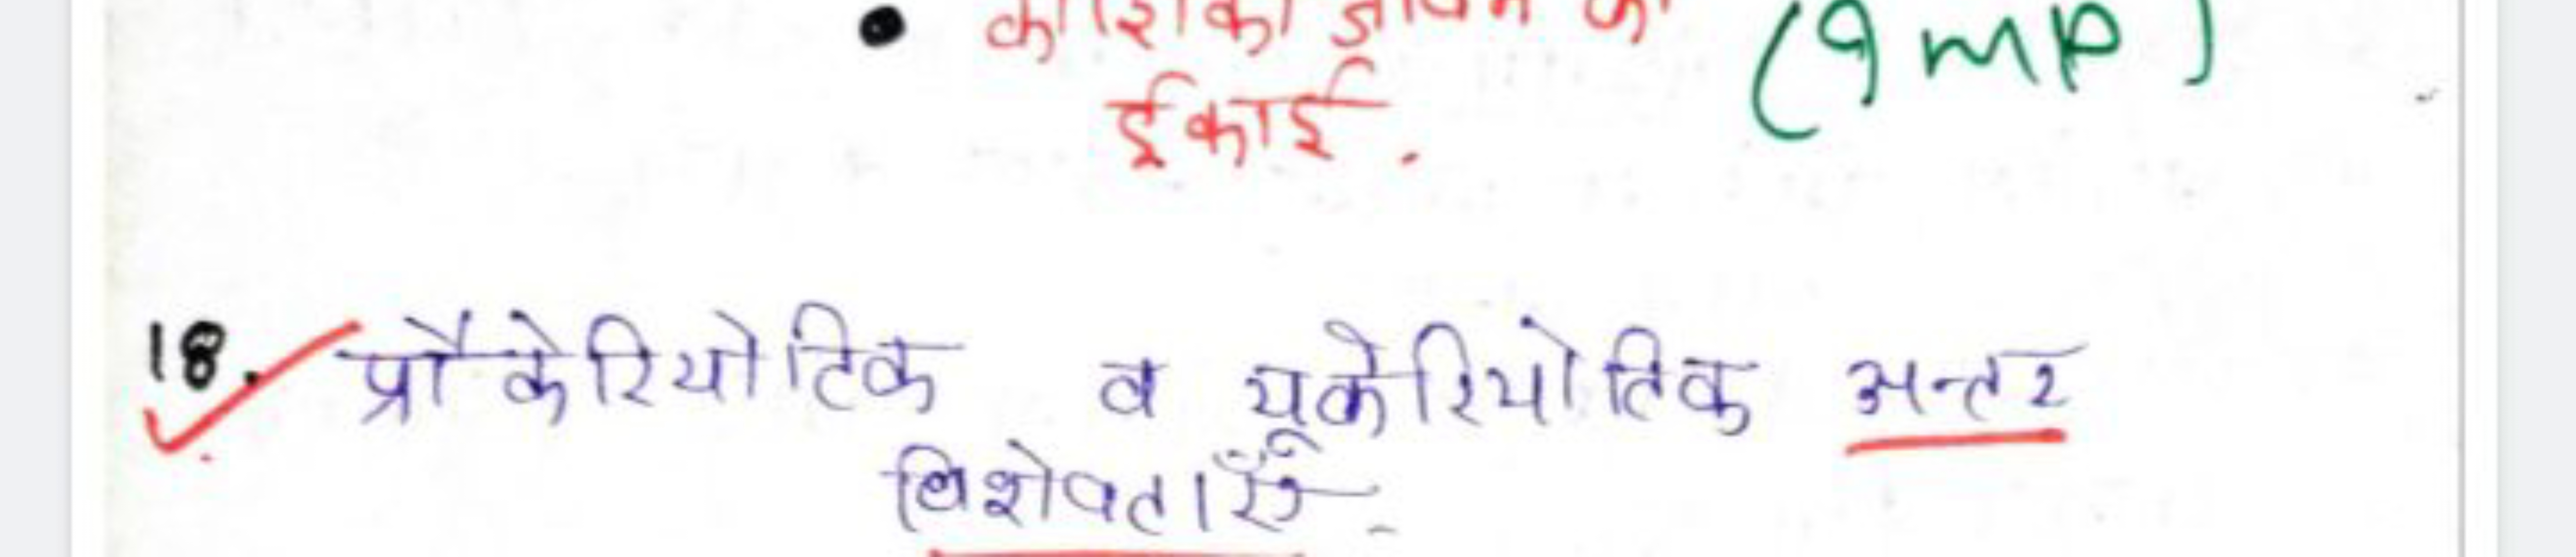 • कोशिका जीवन की (IMP)
ईकाई.
18. प्रौकेरियोटिक व यूकेरियोतिक अन्तर
विशेषताएँ.